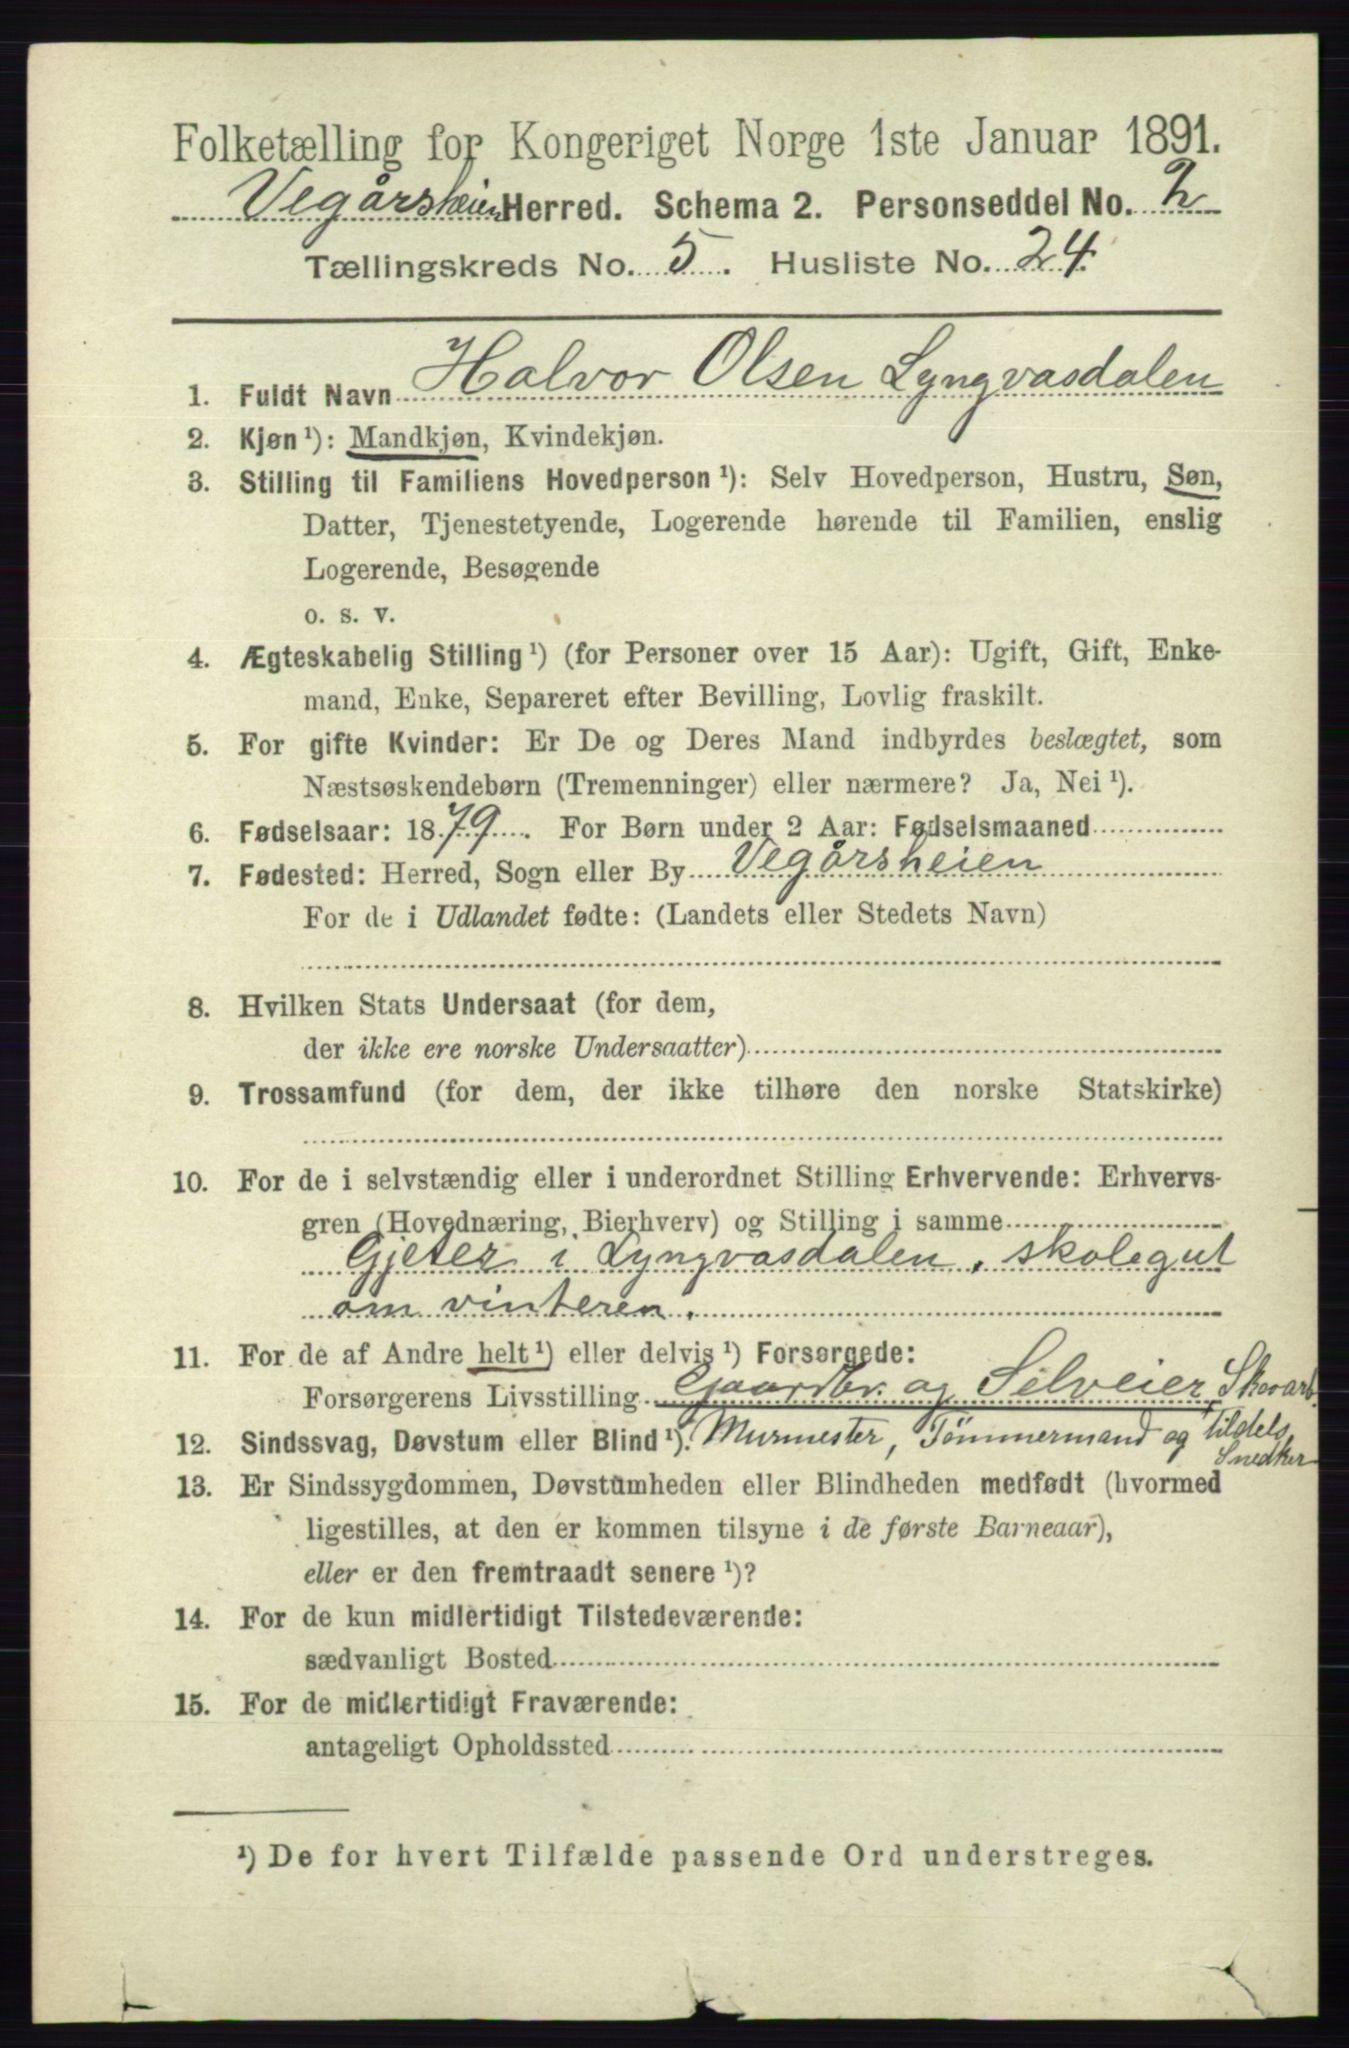 Folketælling for Kongeriget Norge 1ste Januar 1891.
Vegårsheien Herred. Schema 2. Personseddel No. 2
Tællingskreds No. 5. Husliste No. 24
1. Fuldt Navn Halvor Olsen Lyngvasdalen
2. Kjøn ¹): Mandkjøn, Kvindekjøn.
3. Stilling til Familiens Hovedperson ¹): Selv Hovedperson, Hustru, Søn,
Datter, Tjenestetyende, Logerende hørende til Familien, enslig
Logerende, Besøgende
o. s. v.
4. Ægteskabelig Stilling ¹) (for Personer over 15 Aar): Ugift, Gift, Enke-
mand, Enke, Separeret efter Bevilling, Lovlig fraskilt.
5. For gifte Kvinder: Er De og Deres Mand indbyrdes beslægtet, som
Næstsøskendebørn (Tremenninger) eller nærmere? Ja, Nei ¹).
6. Fødselsaar: 1879. For Børn under 2 Aar: Fødselsmaaned
7. Fødested: Herred, Sogn eller By Vegårsheien
For de i Udlandet fødte: (Landets eller Stedets Navn)
8. Hvilken Stats Undersaat (for dem,
der ikke ere norske Undersaatter)
9. Trossamfund (for dem, der ikke tilhøre den norske Statskirke)
10. For de i selvstændig eller i underordnet Stilling Erhvervende: Erhvervs-
gren (Hovednæring, Bierhverv) og Stilling i samme
Gjeter i Lyngvasdalen, skolegut
om vinteren.
11. For de af Andre helt ¹) eller delvis ¹) Forsørgede:
Forsørgerens Livsstilling Gaardbr. og Selveier, Skovarb.
12. Sindssvag, Døvstum eller Blind ¹). Murmester, Tömmermand og tildels
Snedker
13. Er Sindssygdommen, Døvstumheden eller Blindheden medfødt (hvormed
ligestilles, at den er kommen tilsyne i de første Barneaar),
eller er den fremtraadt senere ¹)?
14. For de kun midlertidigt Tilstedeværende:
sædvanligt Bosted
15. For de midlertidigt Fraværende:
antageligt Opholdssted
¹) De for hvert Tilfælde passende Ord understreges.